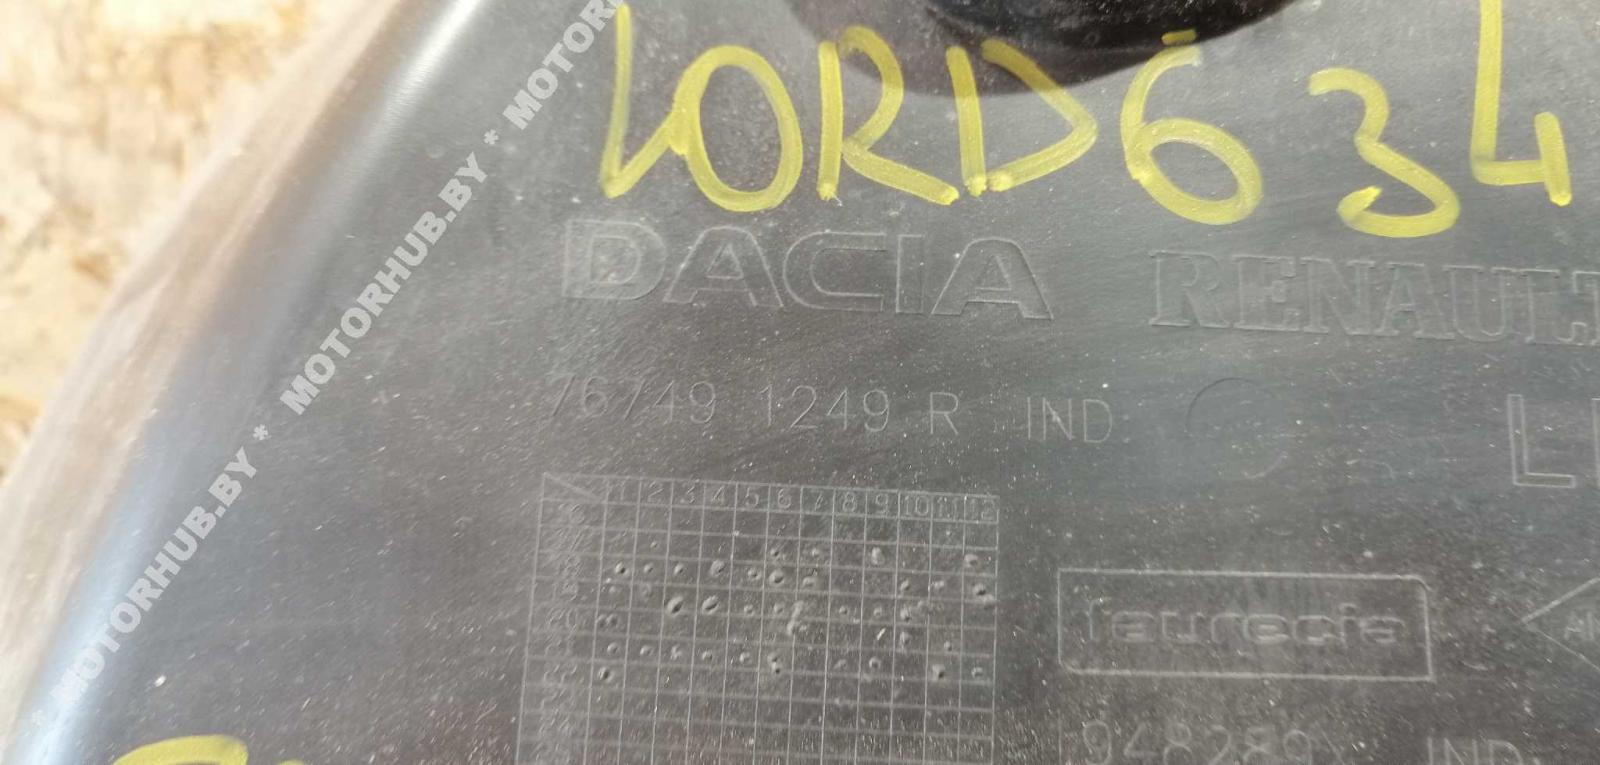 LORD634
DACIA RENAULT
76749 1249 R IND
1 2 3 4 5 6 7 8 9 10 11 12
faurecia
948289 IND.
* MOTORHUB.BY * MOTORHUB.BY * MOTORH